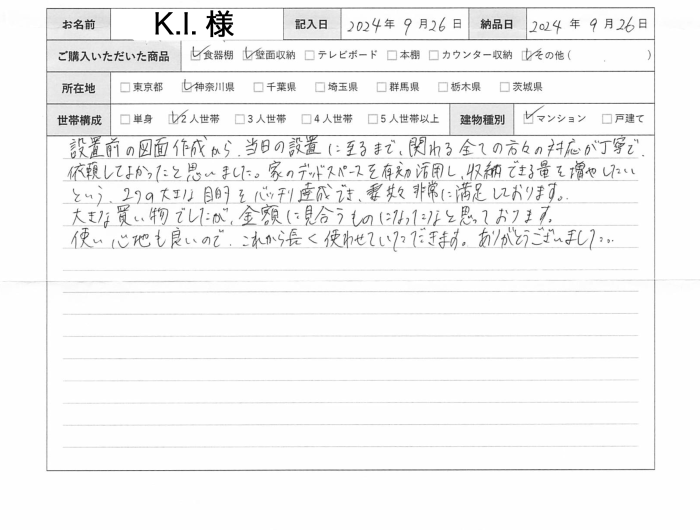 お名前 K.I. 様 記入日 2024年 9月26日 納品日 2024年 9月26日
ご購入いただいた商品 ☑食器棚 ☑壁面収納 □テレビボード □本棚 □カウンター収納 ☑その他( )
所在地 □東京都 ☑神奈川県 □千葉県 □埼玉県 □群馬県 □栃木県 □茨城県
世帯構成 □単身 ☑2人世帯 □3人世帯 □4人世帯 □5人世帯以上 建物種別 ☑マンション □戸建て
設置前の図面作成から、当日の設置に至るまで、関わる全ての方々の対応が丁寧で、
依頼してよかったと思いました。家のデッドスペースを有効活用し、収納できる量を増やしたい
という、2つの大きな目的をバッチリ達成でき、非常に満足しております。
大きな買い物でしたが、金額に見合うものになったなと思っております。
使い心地も良いので、これから長く使わせていただきます。ありがとうございました。